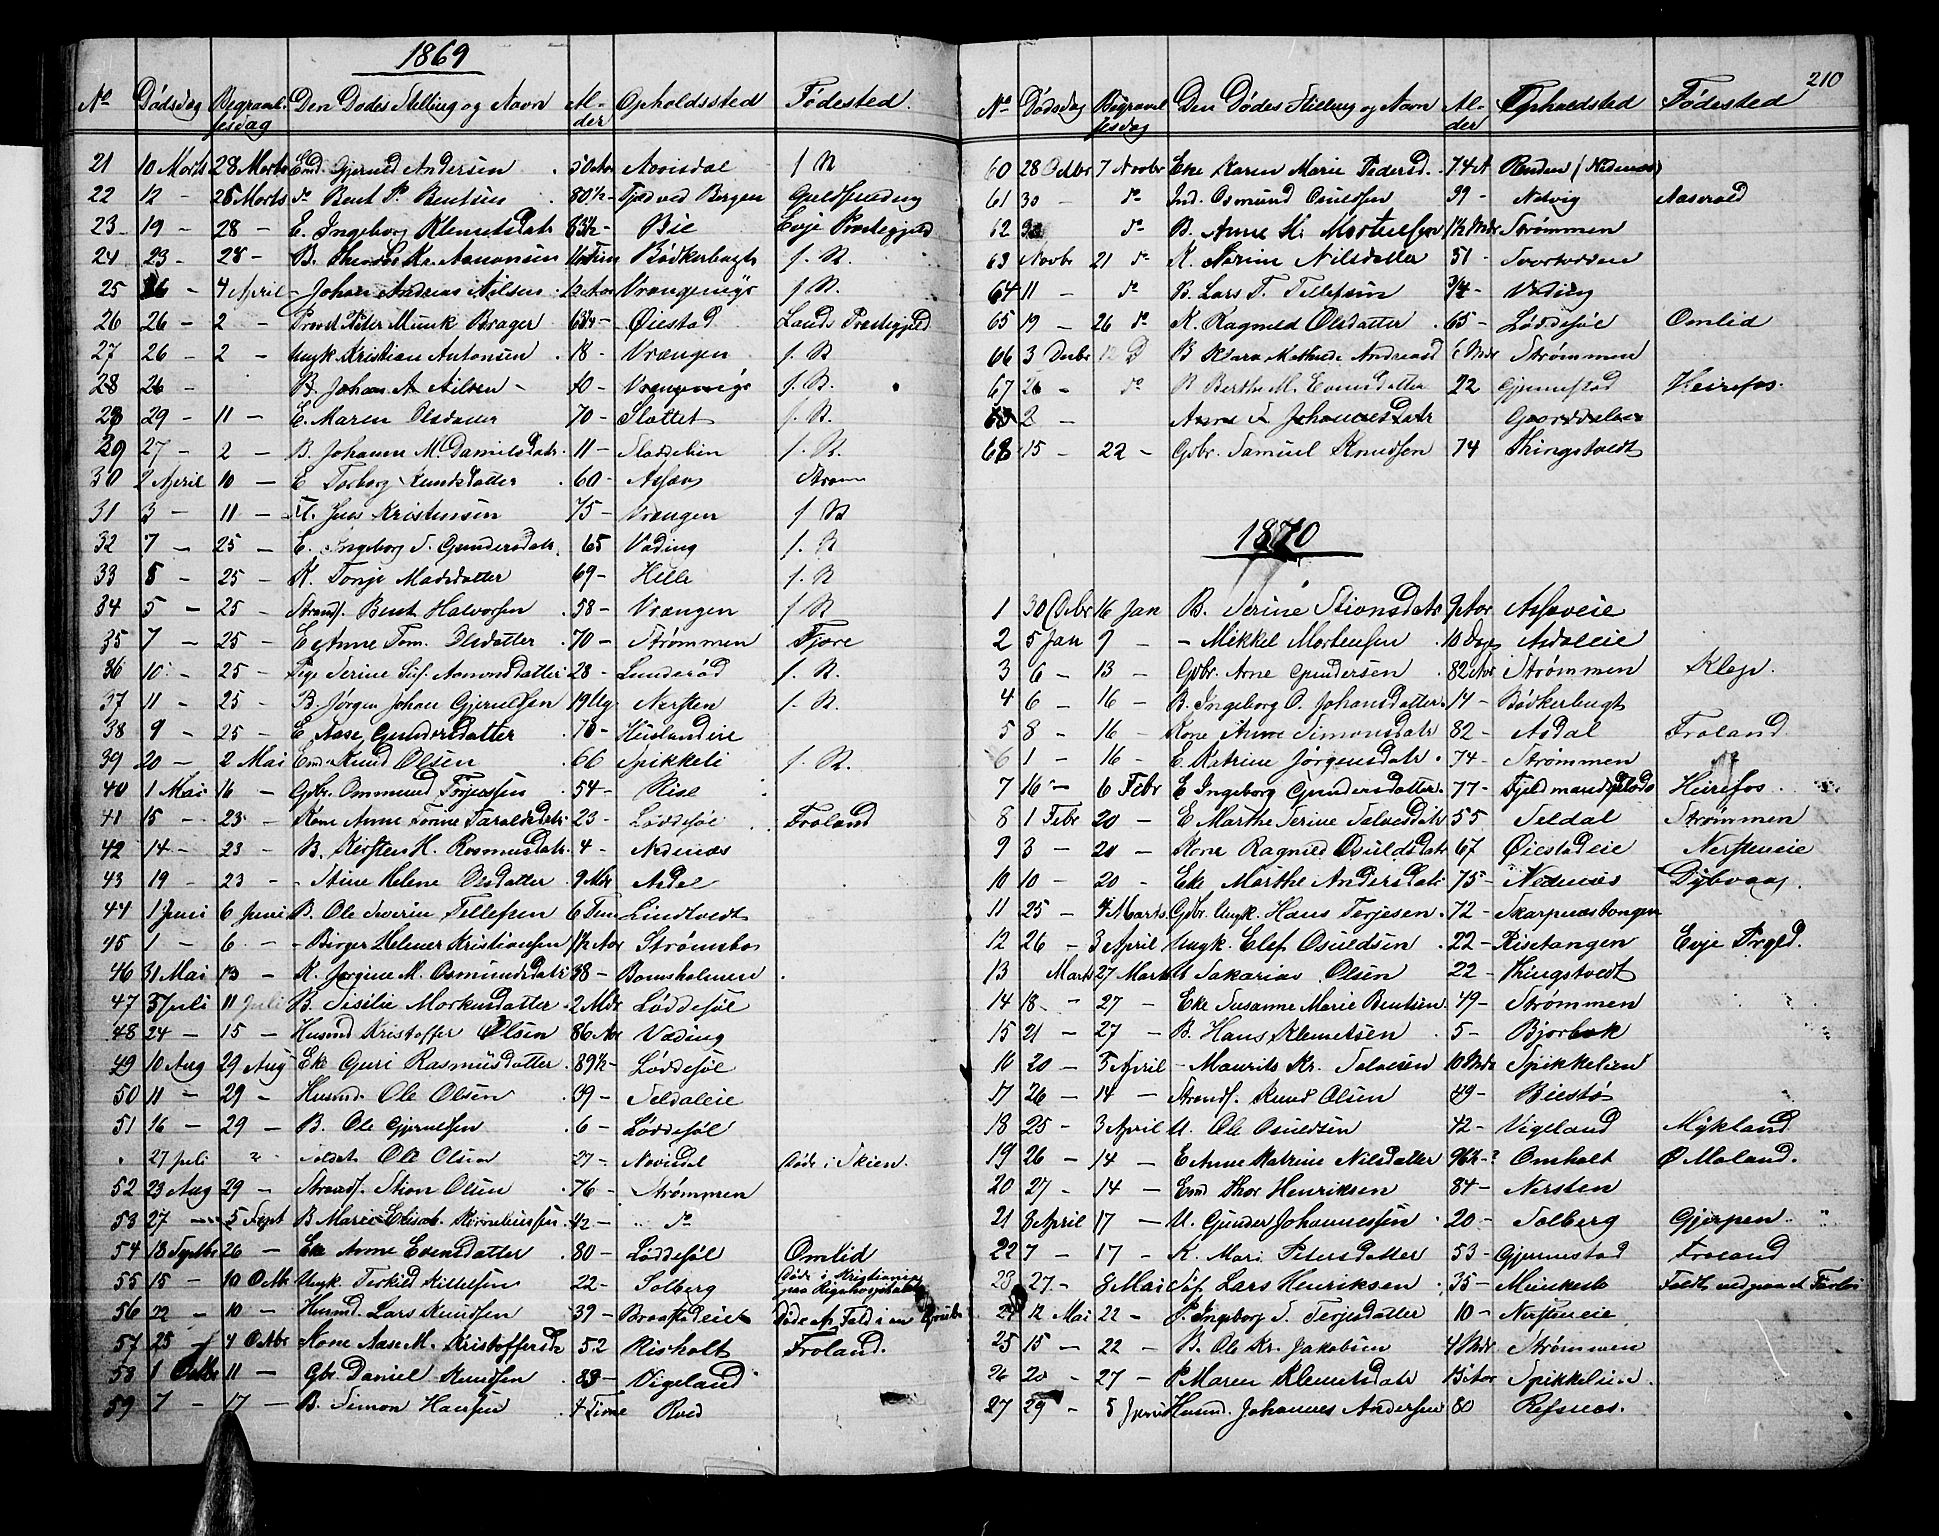 1869
No Dødsdag Begravelsesdag Den Dødes Stilling og Navn Alder Opholdssted Fødested
21 10 Marts 28 Marts Emd. Gjerulf Andersen 50 Aar f N
22 12 - 28 Marts do Bent P. Bentsen 80½ - Fjed ved Bergen
23 19 - 28 - E. Ingeborg Klemetsdatr 83½ - Bie Evje Prestegjeld
24 23 - 28 - B. Aanonsen Bødkerbugt f. N.
25 26 - 4 April - Johan Andreas Nilsen ½ Aar f N.
26 26 - 2 - Provst Peter Munk Brager 63¾ - Øiestad Lands Prestegjeld
27 26 - 2 - Ungk Kristian Antonsen 18 - Vrængen f. N
28 26 - B. Johan A Nilsen - f. N.
28 29 - 11 - E. Maren Olsdatter 70 - Slottet f. N
29 27 - 2 - B. Johanne M. Danielsdatr 11 - f. N.
30 2 April 10 - E Torborg Knudsdatter 60 -
31 3 - 11 - Jens Kristensen 75 - Vrængen f N
32 7 - 25 - E. Ingeborg S. Gundersdatr. 65 Vading f. N
33 8 - 25 - K. Tonje Madsdatter 69 - Helle f. N
34 5 - 25 - Strandf. Bent Halvorsen 58 - Vrængen f N
35 7 - 25 - E Anne Tom. Olsdatter 70 - Strømmen Fjære
36 10 - 25 - Pige Serine Aamondsdatter 28 - Lunderød f. N.
37 11 - 25 - B. Jørgen Johan Gjerulfsen 19 Ug. Nersten f. N.
38 9 - 25 - E Aase Gundersdatter 70 -
39 20 - 2 Mai Emd Knud Olsen 66 Spikkeli f. N.
40 1 Mai 16 - Gbr. Ommund Terjessen 54 - Rise
41 15 - 23 - Kone Anne Torine Taraldsdatr 23 - Løddesøl Froland
42 14 - 23 - B. Kirsten H. Rosmusdatr. 4 - Nedenæs
43 19 - 23 - - Stine Helene Olsdatter 9 Mdr Asdal
44 1 Juni 6 Juni B. Ole Severin Tellefsen 6 Lindtvedt
45 1 - 6 - - Birger Helmer Kristiansen 1½ Aar Strømsbo
46 31 Mai 13 - K. Jørgine M. Osmundsdatr 38 - Bomsholmen
47 3 Juli 11 Juli B. Siselie Morkusdatter 2 Mdr Løddesøl
48 24 - 15 - Husmd Kristoffer Olsen 86 Aar Vading
49 10 Aug 29 Aug Eke Guri Rasmusdatter 89½ - Løddesøl
50 11 - 29 - Husmd. Ole Olsen 39 - Seldaleie
51 16 - 29 - B. Ole Gjerulfsen 6 - Løddesøl
27 Juli Soldat Ole Olsen 27 - døde i Skien.
52 23 Aug 29 - Strandf. Stian Olsen 76 - Strømmen
53 27 - 5 Sept B Marie Elisab. Korneliussen ½ - do
54 18 Septbr 26 - Eke Anne Evensdatter 80 - Løddesøl Omlid
55 15 - 10 Octb Ungk Terkild Kittelsen 22 - Solberg døde i Kristiania paa Rigshospitalet
56 22 - 10 - Husmd. Lars Knudsen 39 - Braastadeiet døde af Fald i en Grube
57 25 - 4 Octbr Kone Aase M. Kristoffersd 52 Risholt Froland.
58 1 Octbr 11 - Gbr Daniel Knudsen 83 - Vigeland
59 7 - 17 - B. Simon Hansen 4 Time
210
No Dødsdag Begravelsesdag Den Dødes Stilling og Navn Alder Opholdsted Fødested
60 28 Octbr 7 Novbr Eke Karen Marie Pedersd. 74 A Renden (Nedenæs)
61 30 do Ind. Osmund Osuldsen 39 - Natvig Aaserald
62 do B. Anne M. Mortensen 1½ Mdr Strømmen
63 Novbr 21 do K. Karine Nilsdatter 51 -
64 11 - do B. Lars T. Tellefsen ¾ - Vading
65 19 - 26 do K. Ragnild Olsdatter 65 - Løddesøl Omlid
66 3 Decbr 12 D B Klara Mathilde Andreasd 6 Mdr Strømmen
67 26 - do B Berthe M. Evensdatter 22 Gjennestad Heirefos.
2 - Anne Johannesdatr
68 15 - 22 - Gbr. Samuel Knudsen 74 Thingstvedt
1870
1 30 Decbr 16 Jan B. Serine Stiansdatr 9 Aar Asfæreie
2 5 Jan 9 - - Mikkel Mortensen 10 Dage Asdaleie
3 6 - 13 - Gbr. Arne Gundersen 82 Aar Strømmen Klep.
4 6 - 16 - B. Ingeborg O. Johansdatter 14 - Bødkerbugt
5 8 - 16 - Kone Anne Simonsdatr 82 - Asdal Froland
6 1 - 16 - E. Katrine Jørgensdatr 74 - Strømmen
7 16 - 6 Febr E Ingeborg Gundersdatter 77 - Heirefos
8 1 Febr 20 - E Marthe Serine Salvesdatr 55 Seldal Strømmen
9 3 - 20 - Kone Ragnild Osuldsdatr 67 Øiestadeie Nersteneie
10 10 - 20 - Eke Marthe Andersdatr 75 - Nedenæs Dybvaag.
11 25 - 4 Marts Gbr. Ungk. Hans Terjesen 72 - Skarpnæstangen
12 26 - 3 April Ungk. Elef Osuldsen 22 - Risetangen Evje Prgld.
13 Marts 27 Marts U Sakarias Olsen 22 - Thingstvedt
14 18 - 27 - Eke Susanne Marie Bentsen 49 - Strømmen
15 21 - 27 - B. Hans Klemetsen 5 - Bjorbæk
16 20 - 3 April - Maurits Kr. Salvesen 10 Mdr Spikkelien
17 26 - 14 - Strandf. Knud Olsen 49 - Biestø
18 25 - 3 April U. Ole Osuldsen 42 - Vigeland Mykland
19 26 - 14 - E Anne Katrine Nilsdatter Omholt Ø Moland.
20 27 - 14 - Emd Thor Henriksen 84 - Nersten
21 8 April 17 - U. Gunder Johannessen 20 - Solberg Gjerpen
22 7 - 17 - K. Mari Petersdatter 53 - Gjennestad Froland
23 27 - 8 Mai Søf Lars Henriksen 35 - Munkesto
24 12 Mai 22 - P. Ingeborg S. Terjesdatter 10 - Nersteneie
25 15 - 22 - B. Ole Kr. Jakobsen 4 Mdr Strømmen
26 20 - 27 - P Maren Klemetsdatr 13 Aar Spikkelien
27 29 - 5 Juni Husmd. Johannes Andersen 80 Refsnæs.